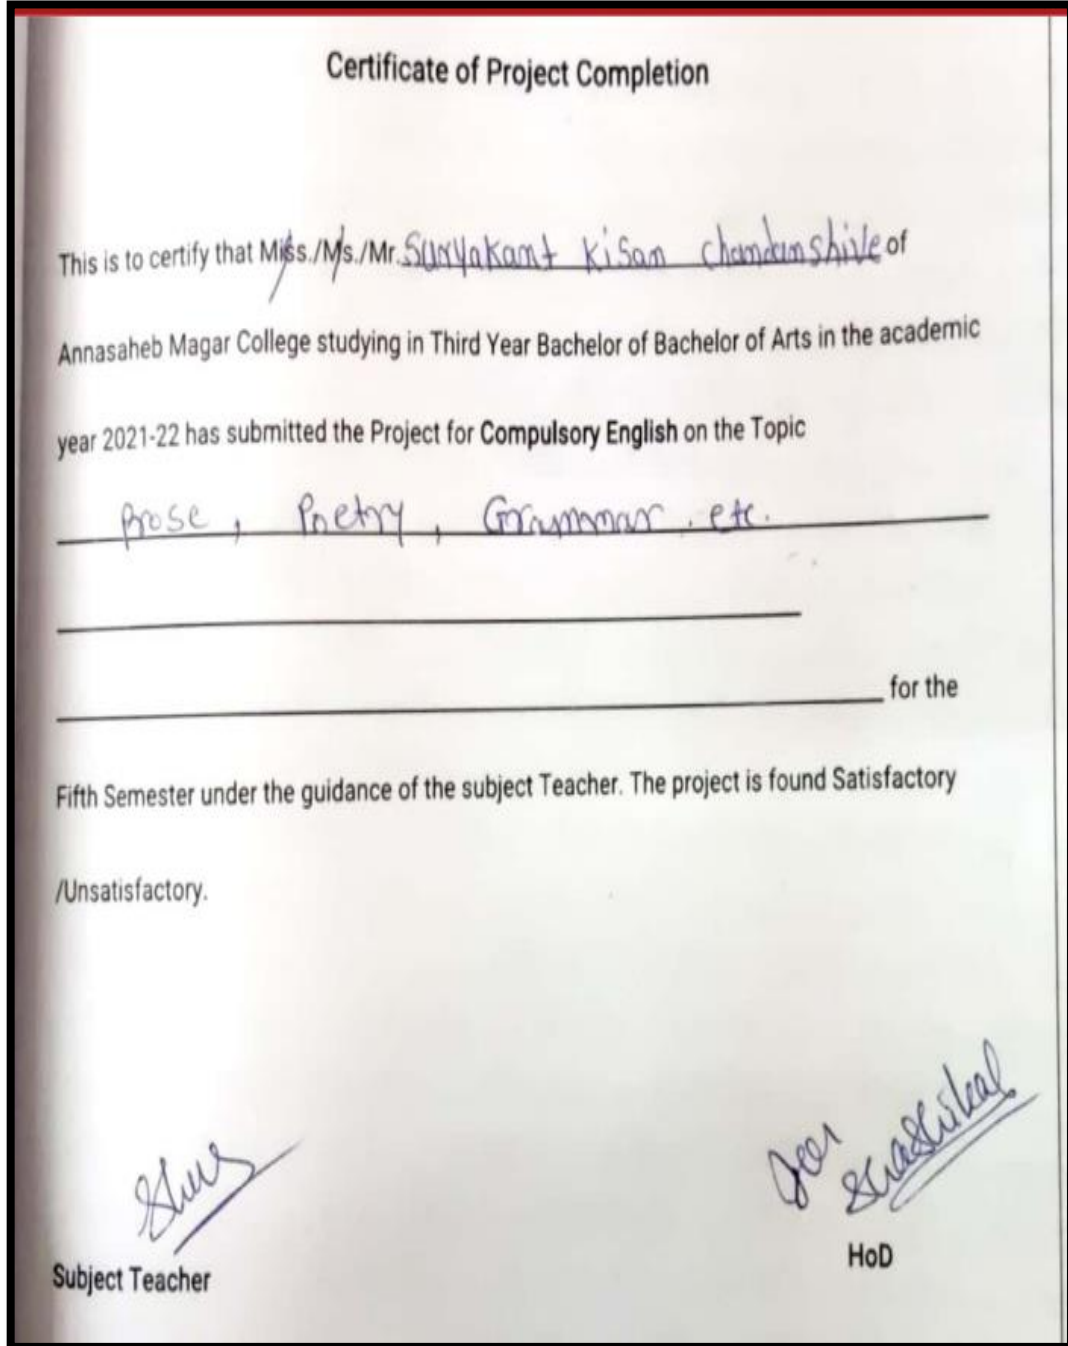 Certificate of Project Completion
This is to certify that Miss./Ms./Mr. Suryakant Kisan chandanshive of
Annasaheb Magar College studying in Third Year Bachelor of Bachelor of Arts in the academic
year 2021-22 has submitted the Project for Compulsory English on the Topic
Prose, Poetry, Grammar. etc.
for the
Fifth Semester under the guidance of the subject Teacher. The project is found Satisfactory
/Unsatisfactory.
Subject Teacher
HoD